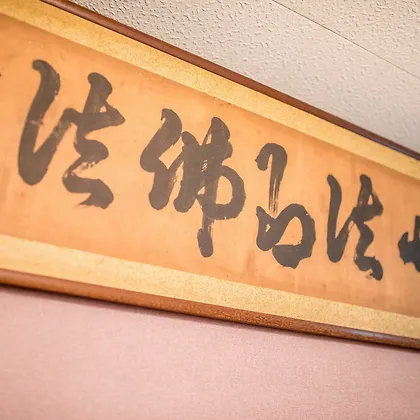 法即佛法